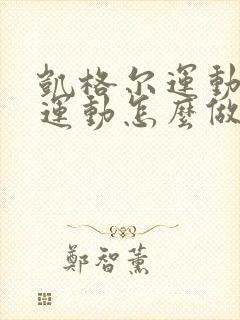 凱格尔運動
運動怎麼做
鄭智薰